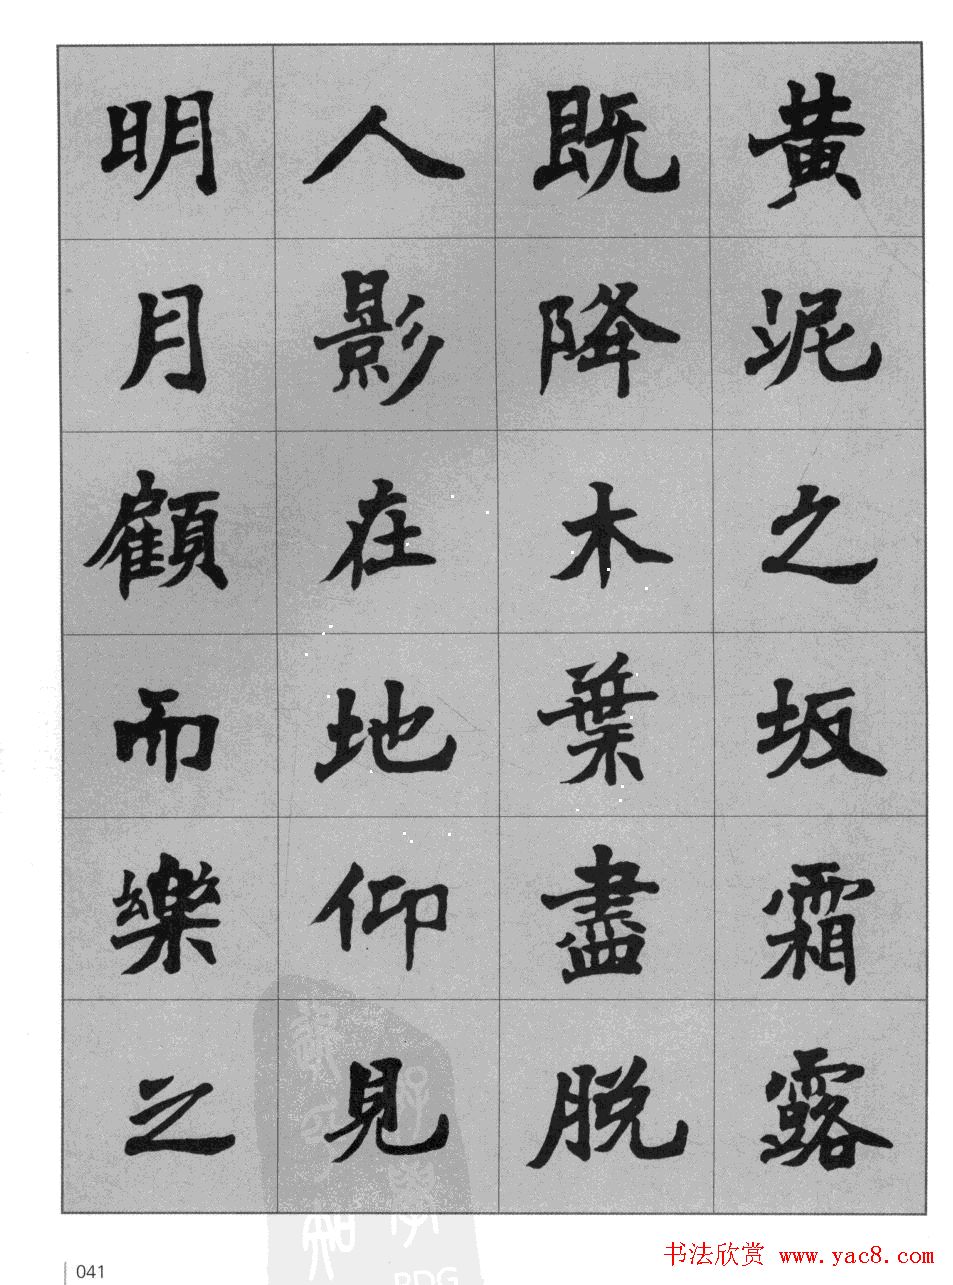 黃泥之坂霜露
既降木葉盡脫
人影在地仰見
明月顧而樂之
041
书法欣赏 www.yac8.com
PDG